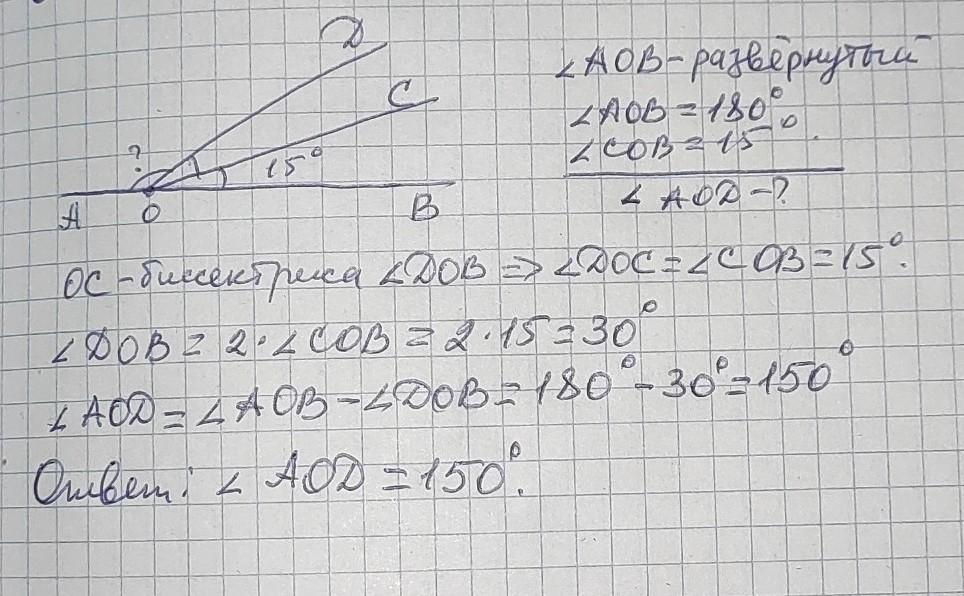 D
C
? 15°
A O B
∠AOB – развёрнутый
∠AOB = 180°
∠COB = 15°.
∠AOD – ?
OC – биссектриса ∠DOB ⇒ ∠DOC = ∠COB = 15°.
∠DOB = 2 · ∠COB = 2 · 15 = 30°
∠AOD = ∠AOB – ∠DOB = 180° – 30° = 150°
Ответ: ∠AOD = 150°.